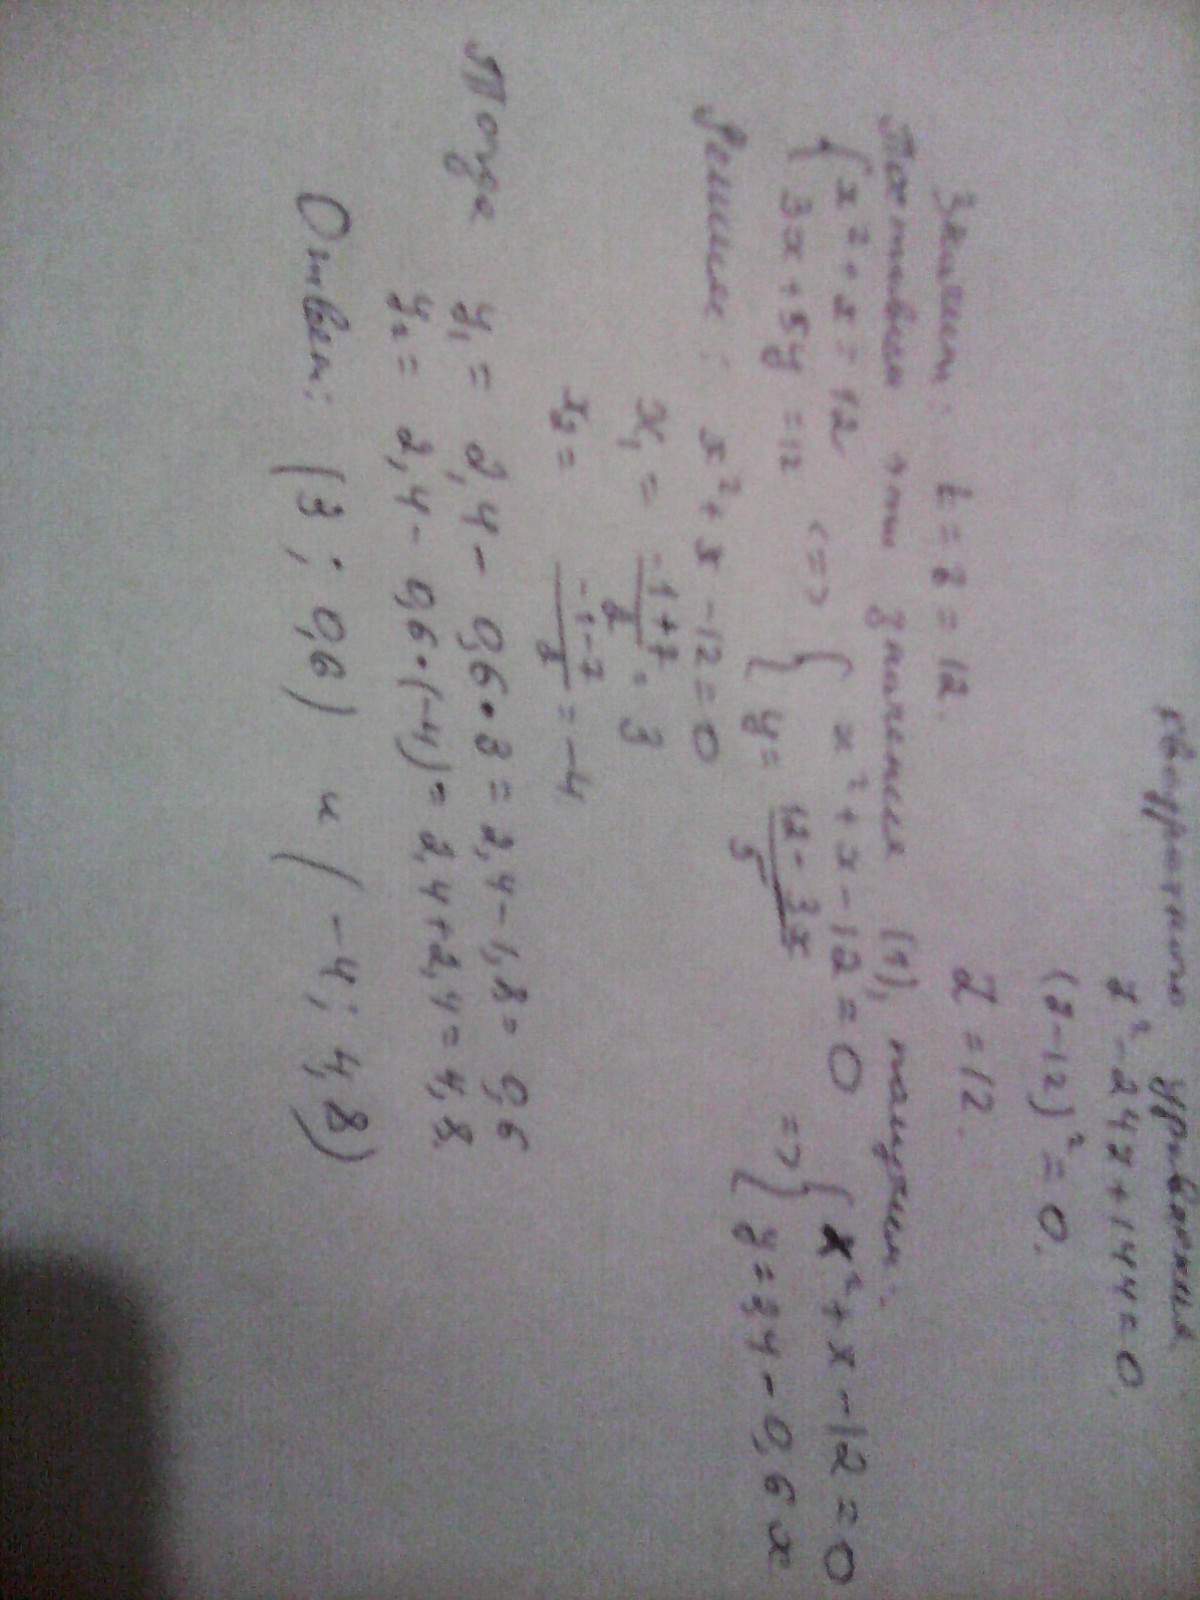 квадратного уравнения
z² - 24z + 144 = 0
(z - 12)² = 0.
z = 12.
Значит: t = z = 12.
Поставим эти значения (1), получим:
{ x² + x = 12
{ 3x + 5y = 12
<=> { x² + x - 12 = 0
{ y = (12 - 3x)/5
=> { x² + x - 12 = 0
{ y = 2,4 - 0,6x
Решим: x² + x - 12 = 0
x₁ = (-1+7)/2 = 3
x₂ = (-1-7)/2 = -4
Тогда y₁ = 2,4 - 0,6 • 3 = 2,4 - 1,8 = 0,6
y₂ = 2,4 - 0,6 • (-4) = 2,4 + 2,4 = 4,8
Ответ: (3 ; 0,6) и (-4; 4,8)